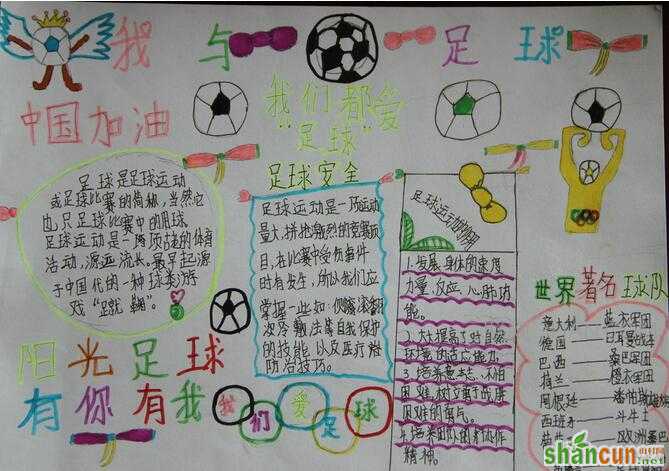 我与足球
中国加油
我们都爱
“足球”
足球是足球运动
或足球比赛的简称,当然它
也只足球比赛中的用球
足球运动是一项古老的体育
活动,源远流长。最早起源
于中国
代的一种球类游
戏“蹴鞠”。
足球安全
足球运动是一项运动
量大,拼抢激烈的竞赛项
目,在比赛中受伤事件
时有发生,所以我们应
掌握一些如:
自我保护
的技能以及医疗
防治技巧。
足球运动的
1.发展身体的速度
力量,反应,心肺功
能。
2.大大提高了对自然
环境的适应能力
3.培养意志,不怕
困难,树立
困难的勇气。
4.培养团队的
协作
精神。
世界著名球队
意大利——蓝衣军团
德国——日耳曼战车
巴西——桑巴军团
荷兰——橙衣军团
阿根廷——潘帕斯雄鹰
西班牙——斗牛士
葡萄牙——欧洲桑巴
阳光足球
有你有我
我们爱足球
shancun
.net